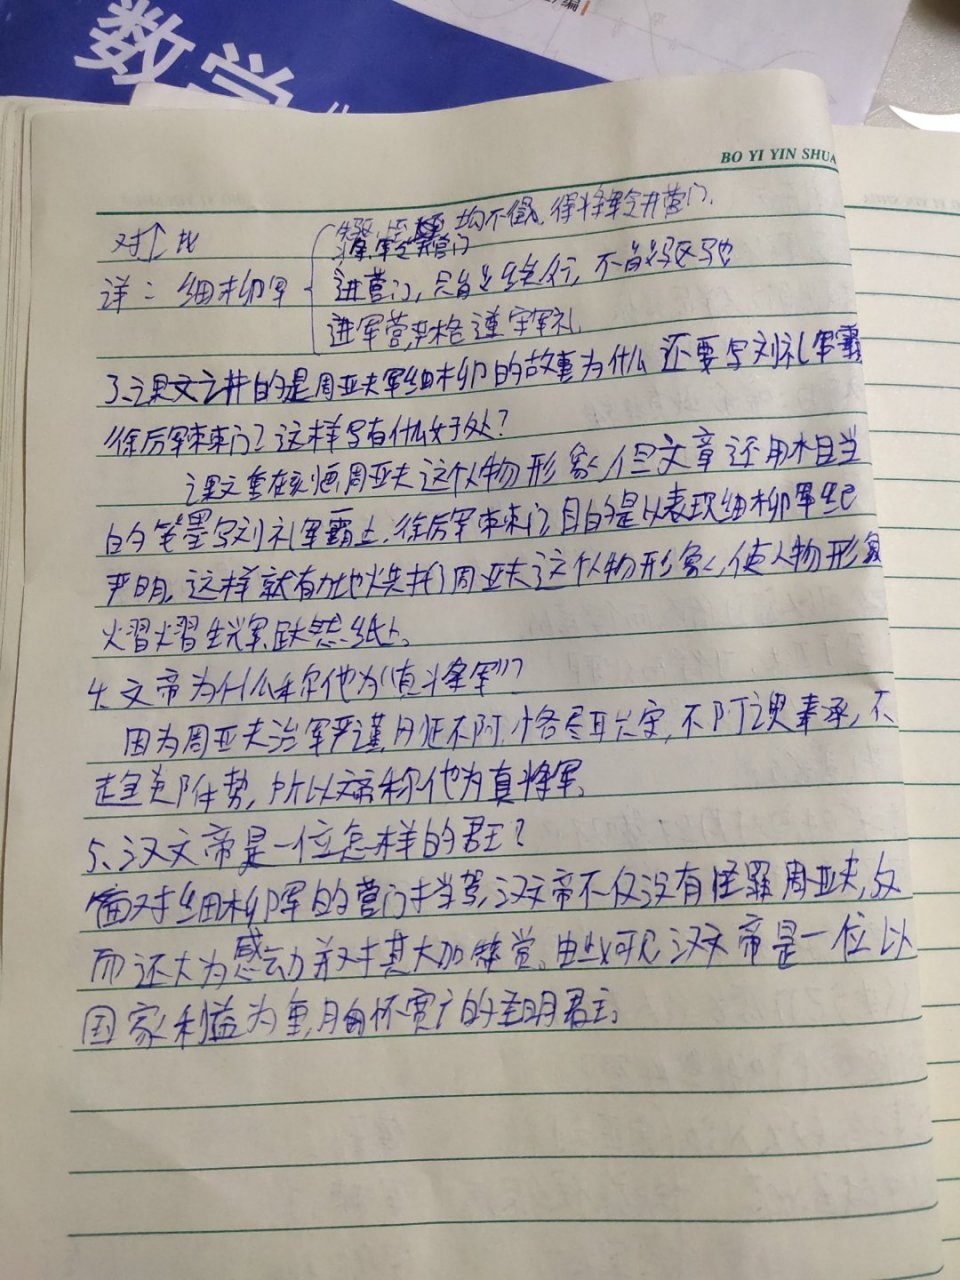 编
数学
BO YI YIN SHUA
均不假,得将军令开营门。
对比
进营门,只能缓行,不能驱驰
详:细柳军
进军营,严格遵守军礼
3、课文讲的是周亚夫军细柳的故事为什么还要写刘礼军霸
徐厉军棘门?这样写有什么好处?
课文重在刻画周亚夫这个人物形象,但文章还用相当
的笔墨写刘礼军霸上,徐厉军棘门,目的是以表现细柳军纪
严明,这样就有力地烘托了周亚夫这个人物形象,使人物形象
熠熠生辉,跃然纸上。
4、文帝为什么称他为“真将军”?
因为周亚夫治军严谨,刚正不阿,恪尽职守,不阿谀奉承,不
趋炎附势,所以文帝称他为真将军。
5、汉文帝是一位怎样的君主?
面对细柳军的营门挡驾,汉文帝不仅没有怪罪周亚夫,反
而还大为感动并对其大加赞赏。由此可见汉文帝是一位以
国家利益为重,胸怀宽广的圣明君主。